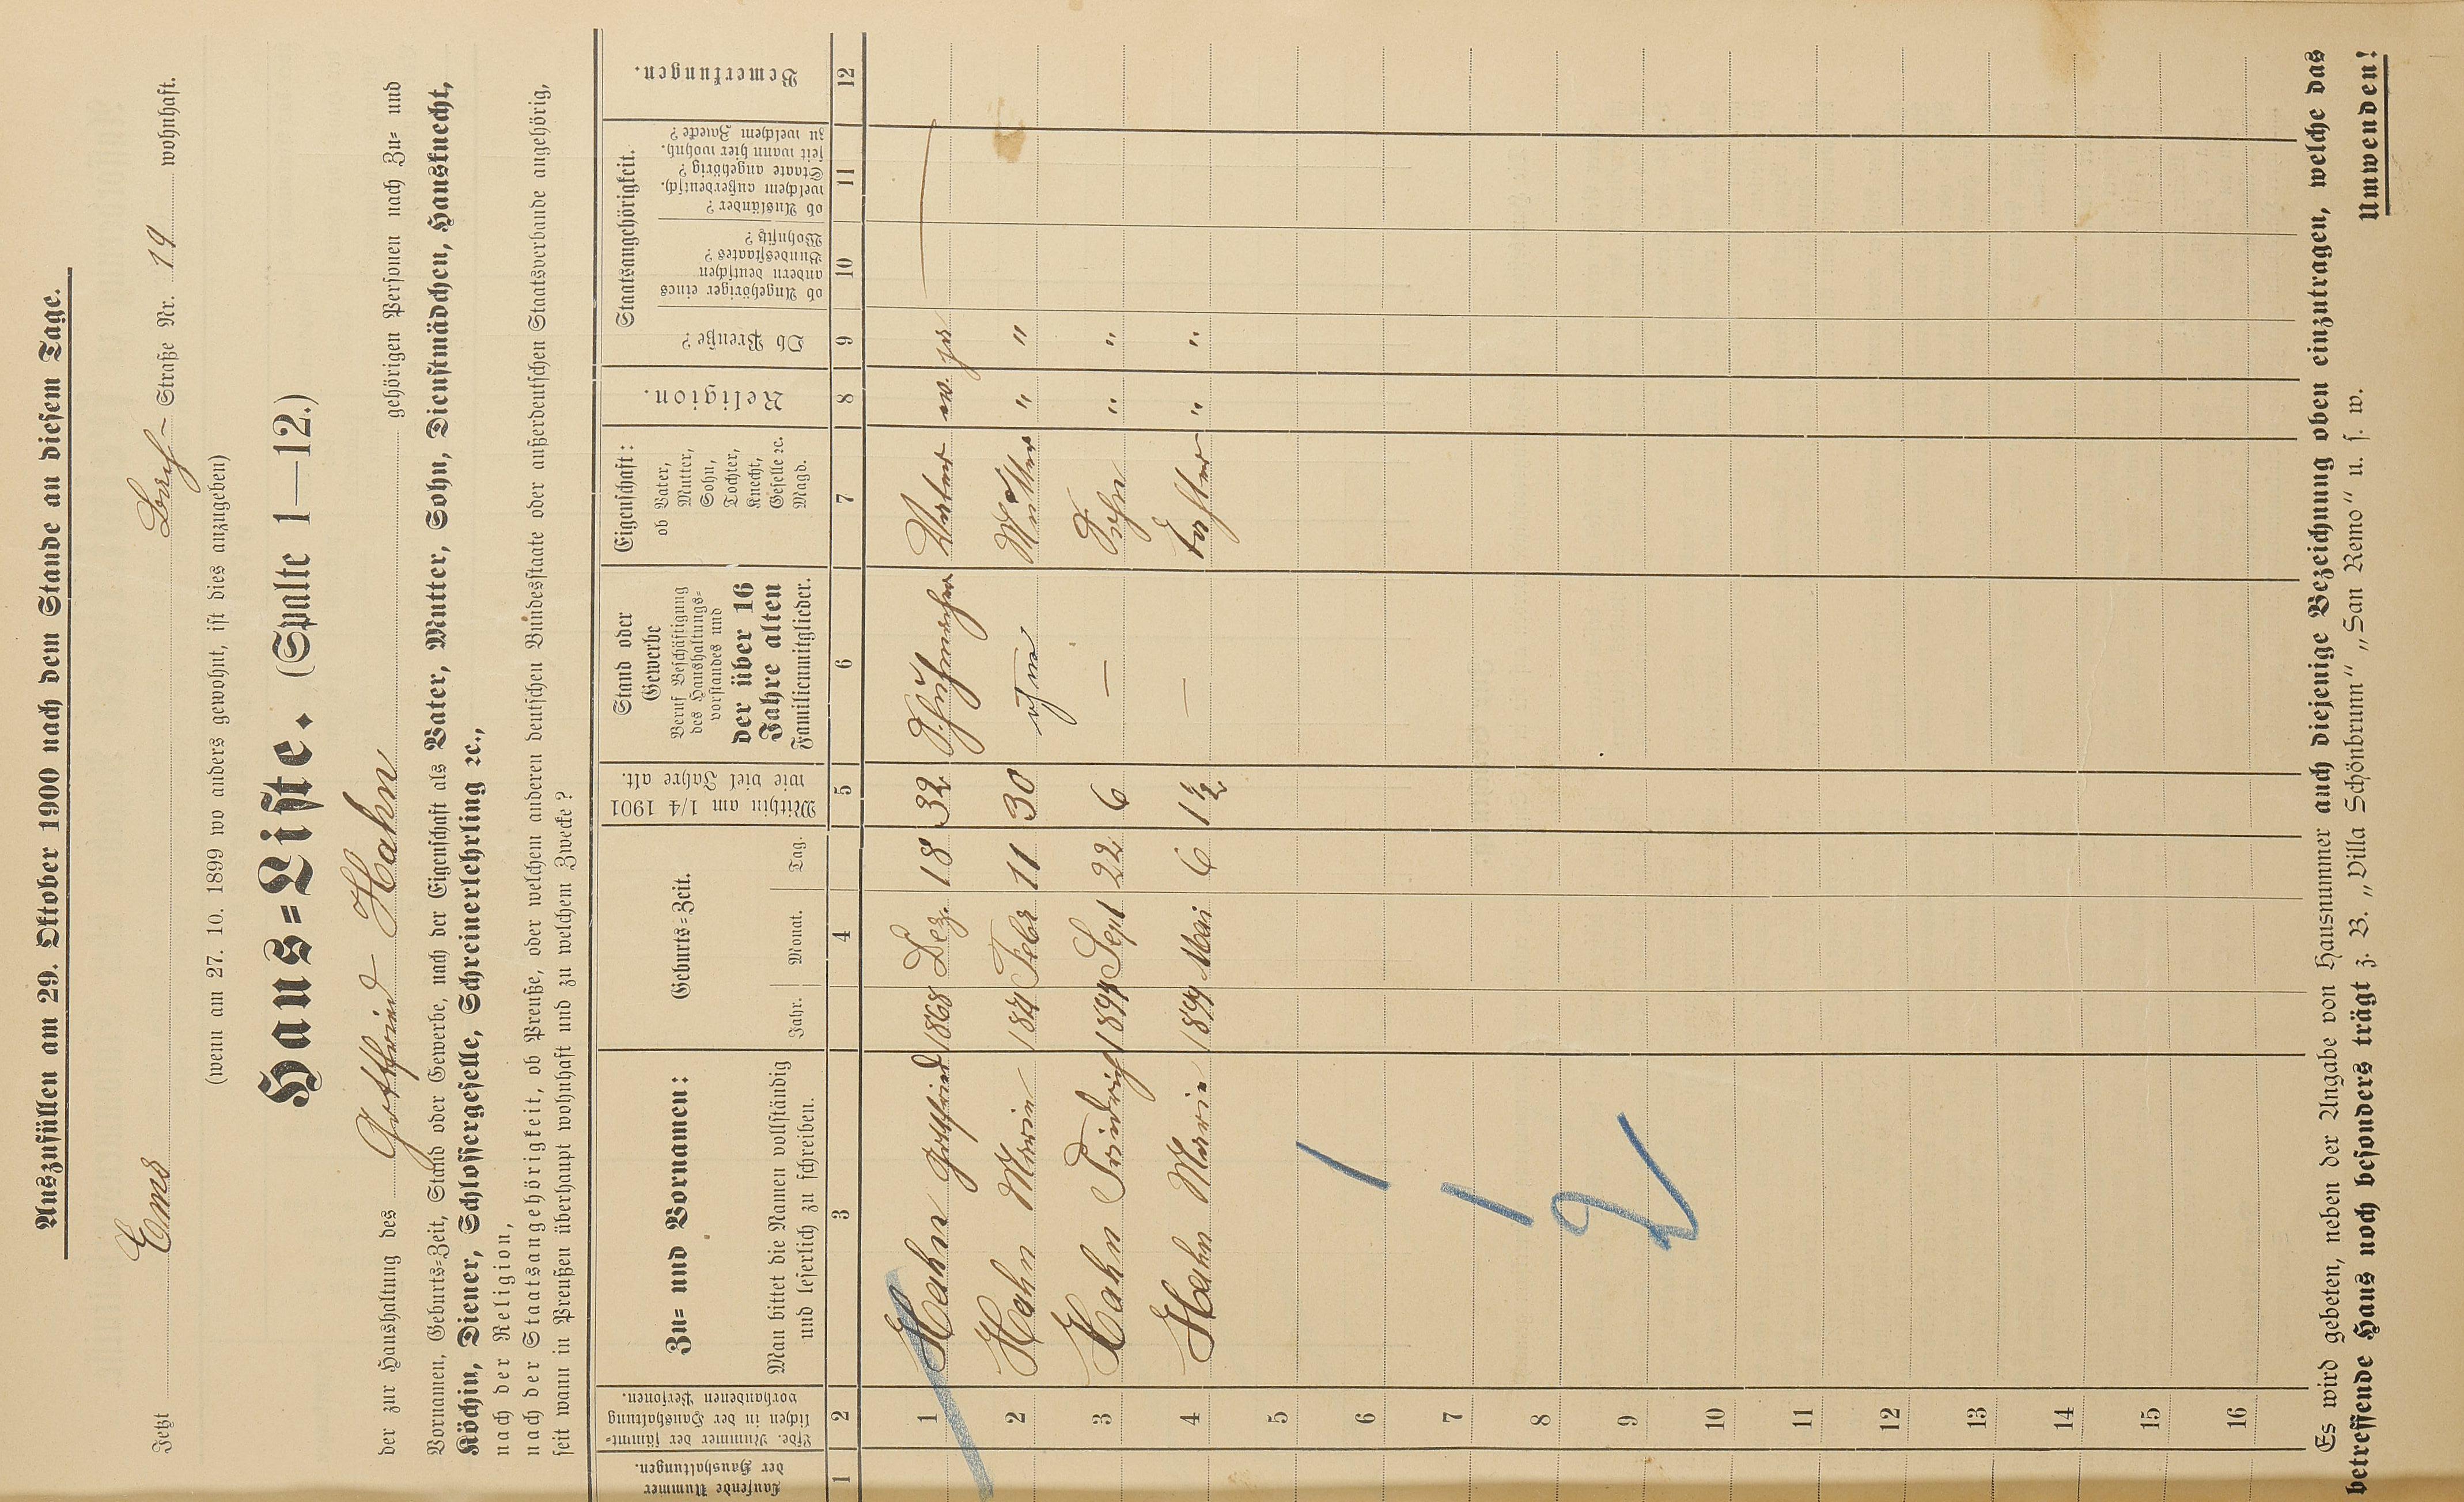 Auszufüllen am 29. Oktober 1900 nach dem Stande an diesem Tage.
Jetzt Ems Straße Nr. 19 wohnhaft.
(wenn am 27. 10. 1899 wo anders gewohnt, ist dies anzugeben)
Haus=Liste. (Spalte 1—12.)
der zur Haushaltung des Gottfried Hahn gehörigen Personen nach Zu= und
Vornamen, Geburts=Zeit, Stand oder Gewerbe, nach der Eigenschaft als Vater, Mutter, Sohn, Dienstmädchen, Hausknecht,
Köchin, Diener, Schlossergeselle, Schreinerlehrling ꝛc.,
nach der Religion,
nach der Staatsangehörigkeit, ob Preuße, oder welchem anderen deutschen Bundesstaate oder außerdeutschen Staatsverbande angehörig,
seit wann in Preußen überhaupt wohnhaft und zu welchem Zwecke?
Laufende Nummer
der Haushaltungen.
Lfde. Nummer der sämmt=
lichen in der Haushaltung
vorhandenen Personen.
Zu= und Vornamen:
Man bittet die Namen vollständig
und leserlich zu schreiben.
Geburts=Zeit.
Jahr. Monat. Tag.
Mithin am 1/4 1901
wie viel Jahre alt.
Stand oder
Gewerbe
Beruf Beschäftigung
des Haushaltungs=
vorstandes und
der über 16
Jahre alten
Familienmitglieder.
Eigenschaft:
ob Vater,
Mutter,
Sohn,
Tochter,
Knecht,
Geselle ꝛc.
Magd.
Religion.
Staatsangehörigkeit.
Ob Preuße?
ob Angehöriger eines
andern deutschen
Bundesstaates?
Wohnsitz?
ob Ausländer?
welchem außerdeutsch.
Staate angehörig?
seit wann hier wohnh.
zu welchem Zwecke?
Bemerkungen.
1 2 3 4 5 6 7 8 9 10 11 12
1 Hahn Gottfried 1868 Dez. 18 32 Schuhmacher Vater ev. ja
2 Hahn Marie Febr 11 30 ohne Mutter " "
3 Hahn Friedrich 1894 Sept 22 6 — Sohn " "
4 Hahn Marie 1899 Mai 6 1½ — Tochter " "
5
6
7
8
9
10
11
12
13
14
15
16
2
Es wird gebeten, neben der Angabe von Hausnummer auch diejenige Bezeichnung oben einzutragen, welche das
betreffende Haus noch besonders trägt z. B. „Villa Schönbrunn" „San Remo" u. s. w.
Umwenden!